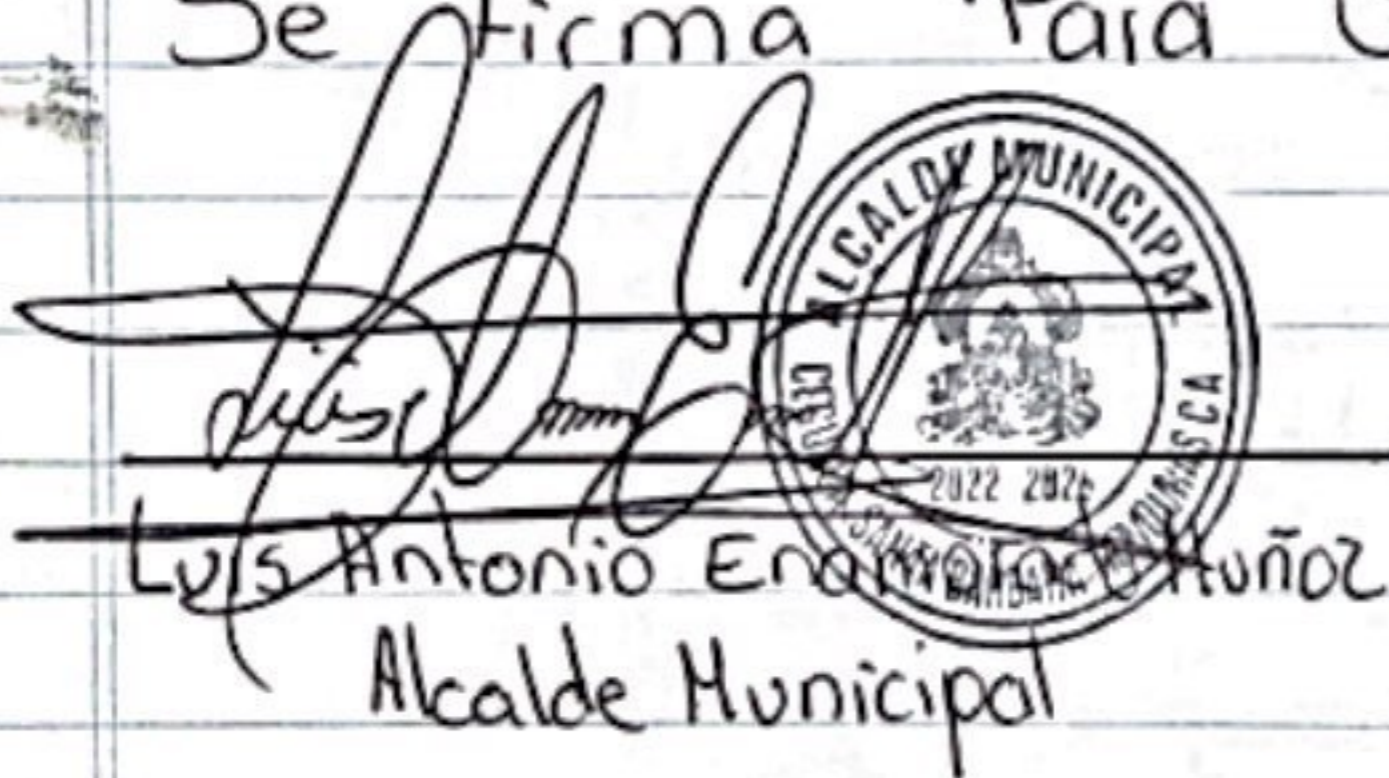 Se firma Para
ALCALDE MUNICIPAL
2022 2026
Luis Antonio Muñoz
Alcalde Municipal